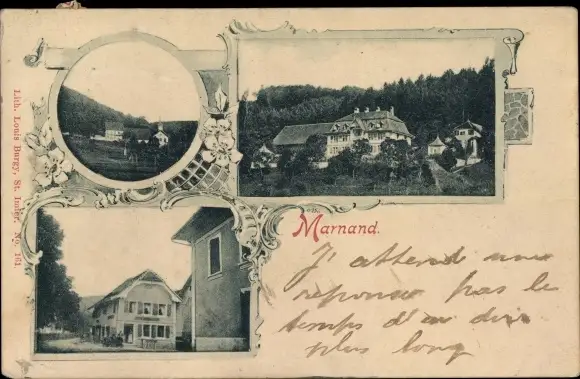 Lith. Louis Burgy, St. Imier. No. 161.
Marnand.
J'attend une
reponse pas le
temps d'en dire
plus long